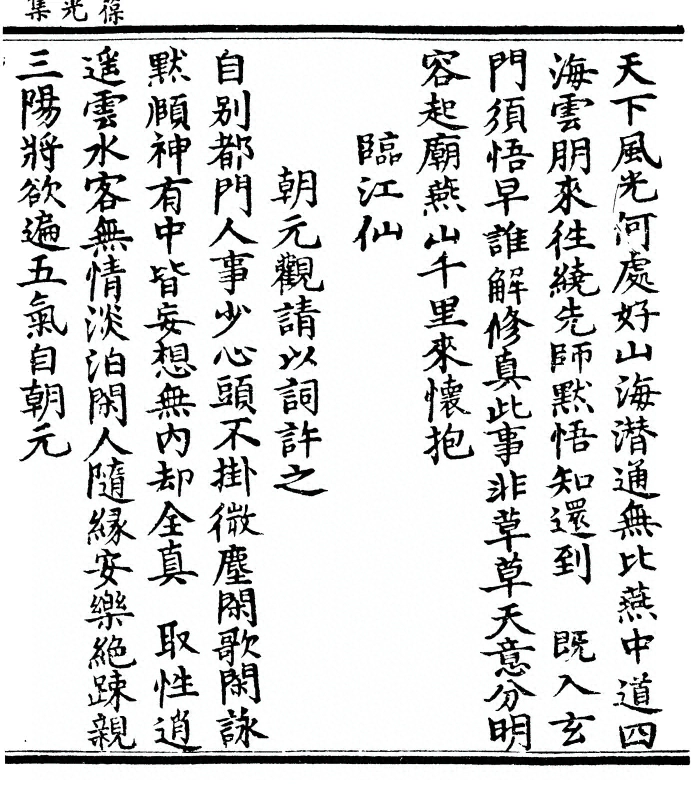 葆光集
天下風光何處好山海潛通無比燕中道四
海雲朋來徃繞先師默悟知還到　既入玄
門須悟早誰解修真此事非草草天意分明
容起廟燕山千里來懷抱
臨江仙
朝元觀請以詞許之
自别都門人事少心頭不掛微塵閑歌閑詠
默頋神有中皆妄想無內却全真　取性逍
遥雲水客無情淡泊閑人隨緣安樂絶踈親
三陽將欲遍五氣自朝元